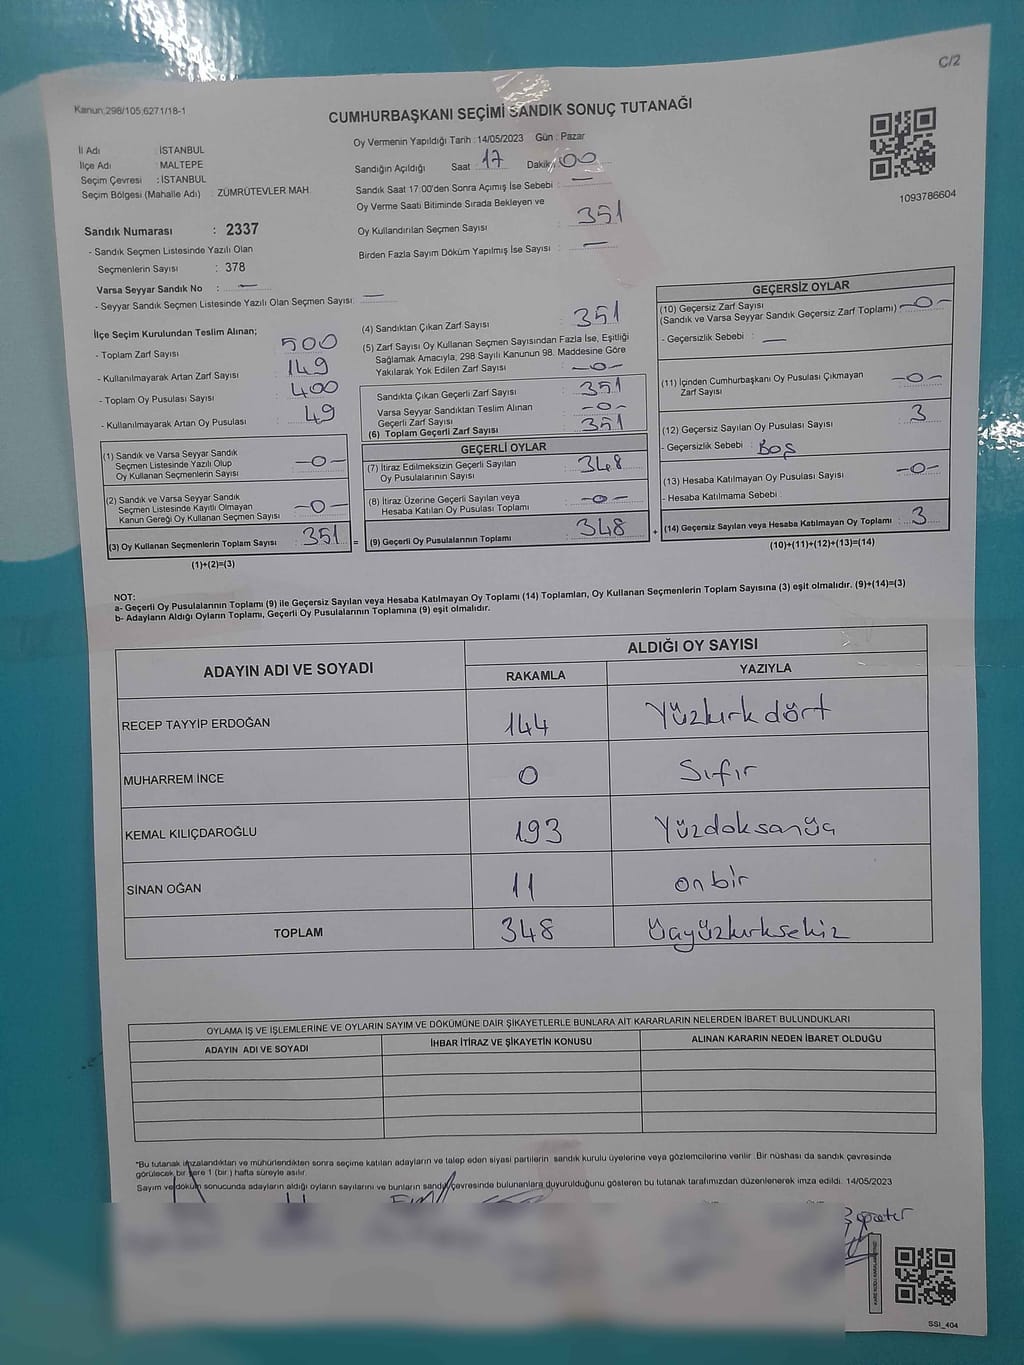 C/2
Kanun:298/105,6271/18-1
CUMHURBAŞKANI SEÇİMİ SANDIK SONUÇ TUTANAĞI
Oy Vermenin Yapıldığı Tarih : 14/05/2023 Gün : Pazar
İl Adı : İSTANBUL
İlçe Adı : MALTEPE
Seçim Çevresi : İSTANBUL
Seçim Bölgesi (Mahalle Adı) : ZÜMRÜTEVLER MAH.
Sandığın Açıldığı Saat 17 Dakika 00
Sandık Saat 17:00'den Sonra Açımış İse Sebebi : —
Oy Verme Saati Bitiminde Sırada Bekleyen ve
Oy Kullandırılan Seçmen Sayısı : 351
Birden Fazla Sayım Döküm Yapılmış İse Sayısı : —
1093786604
Sandık Numarası : 2337
- Sandık Seçmen Listesinde Yazılı Olan
Seçmenlerin Sayısı : 378
Varsa Seyyar Sandık No : —
- Seyyar Sandık Seçmen Listesinde Yazılı Olan Seçmen Sayısı: —
İlçe Seçim Kurulundan Teslim Alınan;
- Toplam Zarf Sayısı : 500
- Kullanılmayarak Artan Zarf Sayısı : 149
- Toplam Oy Pusulası Sayısı : 400
- Kullanılmayarak Artan Oy Pusulası : 49
(1) Sandık ve Varsa Seyyar Sandık
Seçmen Listesinde Yazılı Olup
Oy Kullanan Seçmenlerin Sayısı : -0-
(2) Sandık ve Varsa Seyyar Sandık
Seçmen Listesinde Kayıtlı Olmayan
Kanun Gereği Oy Kullanan Seçmen Sayısı : -0-
(3) Oy Kullanan Seçmenlerin Toplam Sayısı : 351
(1)+(2)=(3)
(4) Sandıktan Çıkan Zarf Sayısı : 351
(5) Zarf Sayısı Oy Kullanan Seçmen Sayısından Fazla İse, Eşitliği
Sağlamak Amacıyla, 298 Sayılı Kanunun 98. Maddesine Göre
Yakılarak Yok Edilen Zarf Sayısı : -0-
Sandıkta Çıkan Geçerli Zarf Sayısı : 351
Varsa Seyyar Sandıktan Teslim Alınan
Geçerli Zarf Sayısı : -0-
(6) Toplam Geçerli Zarf Sayısı : 351
=
GEÇERLİ OYLAR
(7) İtiraz Edilmeksizin Geçerli Sayılan
Oy Pusulalarının Sayısı : 348
(8) İtiraz Üzerine Geçerli Sayılan veya
Hesaba Katılan Oy Pusulası Toplamı : -0-
(9) Geçerli Oy Pusulalarının Toplamı : 348
+
GEÇERSİZ OYLAR
(10) Geçersiz Zarf Sayısı
(Sandık ve Varsa Seyyar Sandık Geçersiz Zarf Toplamı) -0-
- Geçersizlik Sebebi : —
(11) İçinden Cumhurbaşkanı Oy Pusulası Çıkmayan
Zarf Sayısı : -0-
(12) Geçersiz Sayılan Oy Pusulası Sayısı : 3
- Geçersizlik Sebebi : Boş
(13) Hesaba Katılmayan Oy Pusulası Sayısı : -0-
- Hesaba Katılmama Sebebi :
(14) Geçersiz Sayılan veya Hesaba Katılmayan Oy Toplamı : 3
(10)+(11)+(12)+(13)=(14)
NOT:
a- Geçerli Oy Pusulalarının Toplamı (9) ile Geçersiz Sayılan veya Hesaba Katılmayan Oy Toplamı (14) Toplamları, Oy Kullanan Seçmenlerin Toplam Sayısına (3) eşit olmalıdır. (9)+(14)=(3)
b- Adayların Aldığı Oyların Toplamı, Geçerli Oy Pusulalarının Toplamına (9) eşit olmalıdır.
ADAYIN ADI VE SOYADI
ALDIĞI OY SAYISI
RAKAMLA YAZIYLA
RECEP TAYYİP ERDOĞAN 144 Yüzkırkdört
MUHARREM İNCE 0 Sıfır
KEMAL KILIÇDAROĞLU 193 Yüzdoksanüç
SİNAN OĞAN 11 onbir
TOPLAM 348 üçyüzkırksekiz
OYLAMA İŞ VE İŞLEMLERİNE VE OYLARIN SAYIM VE DÖKÜMÜNE DAİR ŞİKAYETLERLE BUNLARA AİT KARARLARIN NELERDEN İBARET BULUNDUKLARI
ADAYIN ADI VE SOYADI İHBAR İTİRAZ VE ŞİKAYETİN KONUSU ALINAN KARARIN NEDEN İBARET OLDUĞU
*Bu tutanak imzalandıktan ve mühürlendikten sonra seçime katılan adayların ve talep eden siyasi partilerin sandık kurulu üyelerine veya gözlemcilerine verilir. Bir nüshası da sandık çevresinde
görülecek bir yere 1 (bir) hafta süreyle asılır.
Sayım ve döküm sonucunda adayların aldığı oyların sayılarını ve bunların sandık çevresinde bulunanlara duyurulduğunu gösteren bu tutanak tarafımızdan düzenlenerek imza edildi. 14/05/2023
SSI_404